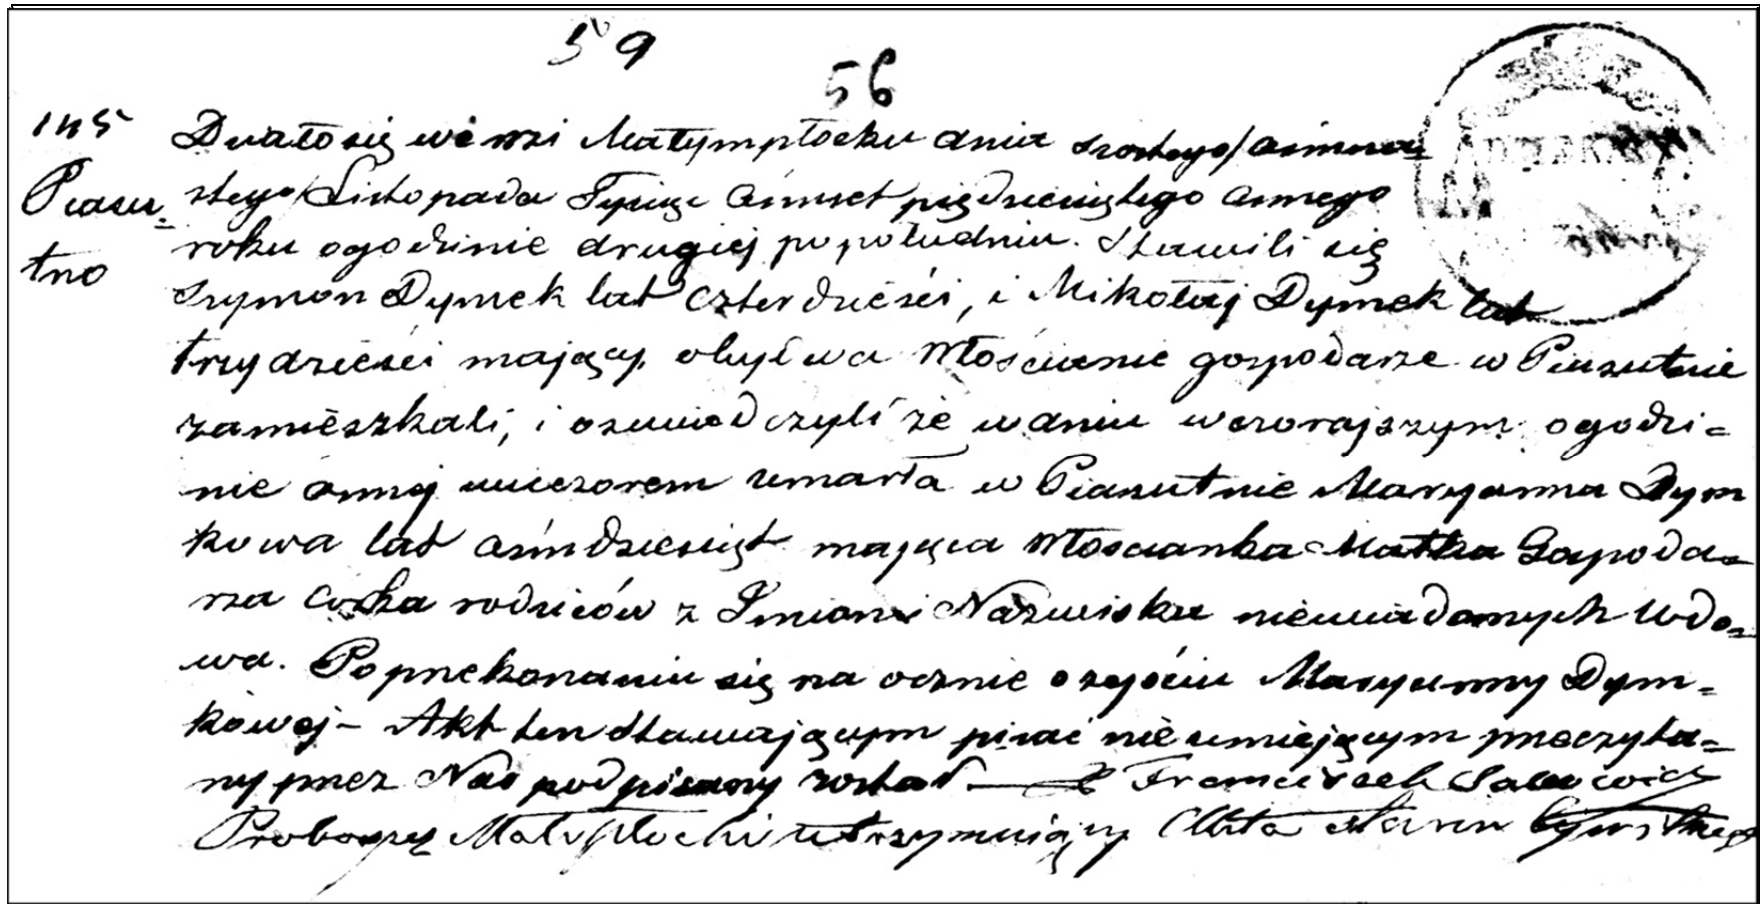 59
56
145
Piasu-
tno
Działo się we wsi Małymplocku dnia szóstego/ośmna-
stego/Listopada Tysiąc ośmset pięćdziesiątego osmego
roku ogodzinie drugiej popołudniu. Stawili się
Szymon Dymek lat czterdzieści, i Mikołaj Dymek lat
trzydzieści mający, obydwa Włościanie gospodarze w Piasutnie
zamieszkali, i oswiadczyli że w dniu wczorajszym ogodzi-
nie ósmej wieczorem umarła w Piasutnie Maryanna Dym
kowa lat ośmdziesiąt mająca Włoscianka Matka Gospoda-
rza corka rodziców z Imion i Nazwiska niewiadomych Wdo-
wa. Poprzekonaniu się naocznie o zejściu Maryanny Dym-
kowej – Akt ten stawającym pisać nieumiejącym przeczyta-
ny przez Nas podpisany został — X Franciszek Salwowicz
Proboszcz Małopłocki utrzymujący Akta stanu Cywilnego